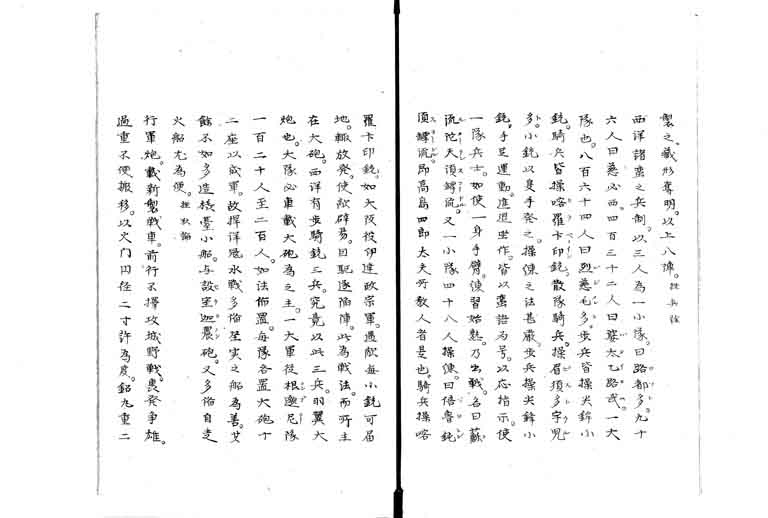 製之。藏形奪明。以上八陣。
西洋諸蛮之兵制。以三人為一小隊。曰路都多。九十
六人曰慈必。西四百三十二人曰
隊也。八百六十四人曰烈慈毛多。歩兵皆操尖鋒小
銃。騎兵皆操喀羅卡印銃。散隊騎兵。操眉須多字児
多。小銃以隻手発之。操使之法甚厳。歩兵操尖鋒小
銃。手足運動。進退坐作。皆以蛮語為号。以応指示。使
一隊兵士。如使一身手臂。使習始熟。乃出戦。名曰蘇
流陀大須鐸流。又一小隊四十八人操使。曰倍魯鈍
須鐸流。即高島四郎太夫所教人者是也。騎兵操喀
羅卡印銃。如大阪役伊達政宗軍。遇敵毎小銃可届
地。輙放発。使敵辟易。因馳逐陥陣。此為戦法。而所主
在大砲。西洋有歩騎銃三兵。究竟以此三兵。羽翼大
炮也。大隊必車載大砲為之主。一大軍従根邀尼隊
一百二十人至二百人。如法佈置。毎隊各置大砲十
二座以成軍。故捍洋風水戦多備堅実之船為善。艾
餙不如多造板台小船。与設空迦農砲。又多備自走
火船尤為便。
行軍炮。載新製戦車。前行不擇攻城野戦。裏発争雄。
過重不便搬移。以火門内径二寸許為度。鉛丸重二